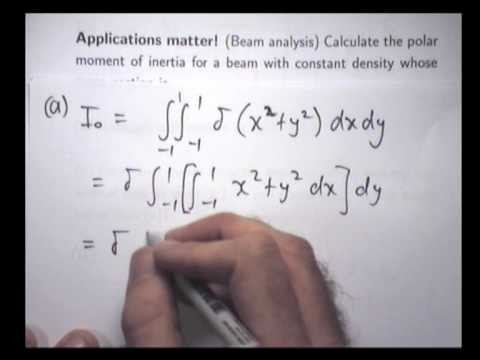 Applications matter! (Beam analysis) Calculate the polar
moment of inertia for a beam with constant density whose
(a) I₀ = ∫₋₁¹∫₋₁¹ δ (x²+y²) dx dy
= δ ∫₋₁¹ [∫₋₁¹ x²+y² dx] dy
= δ